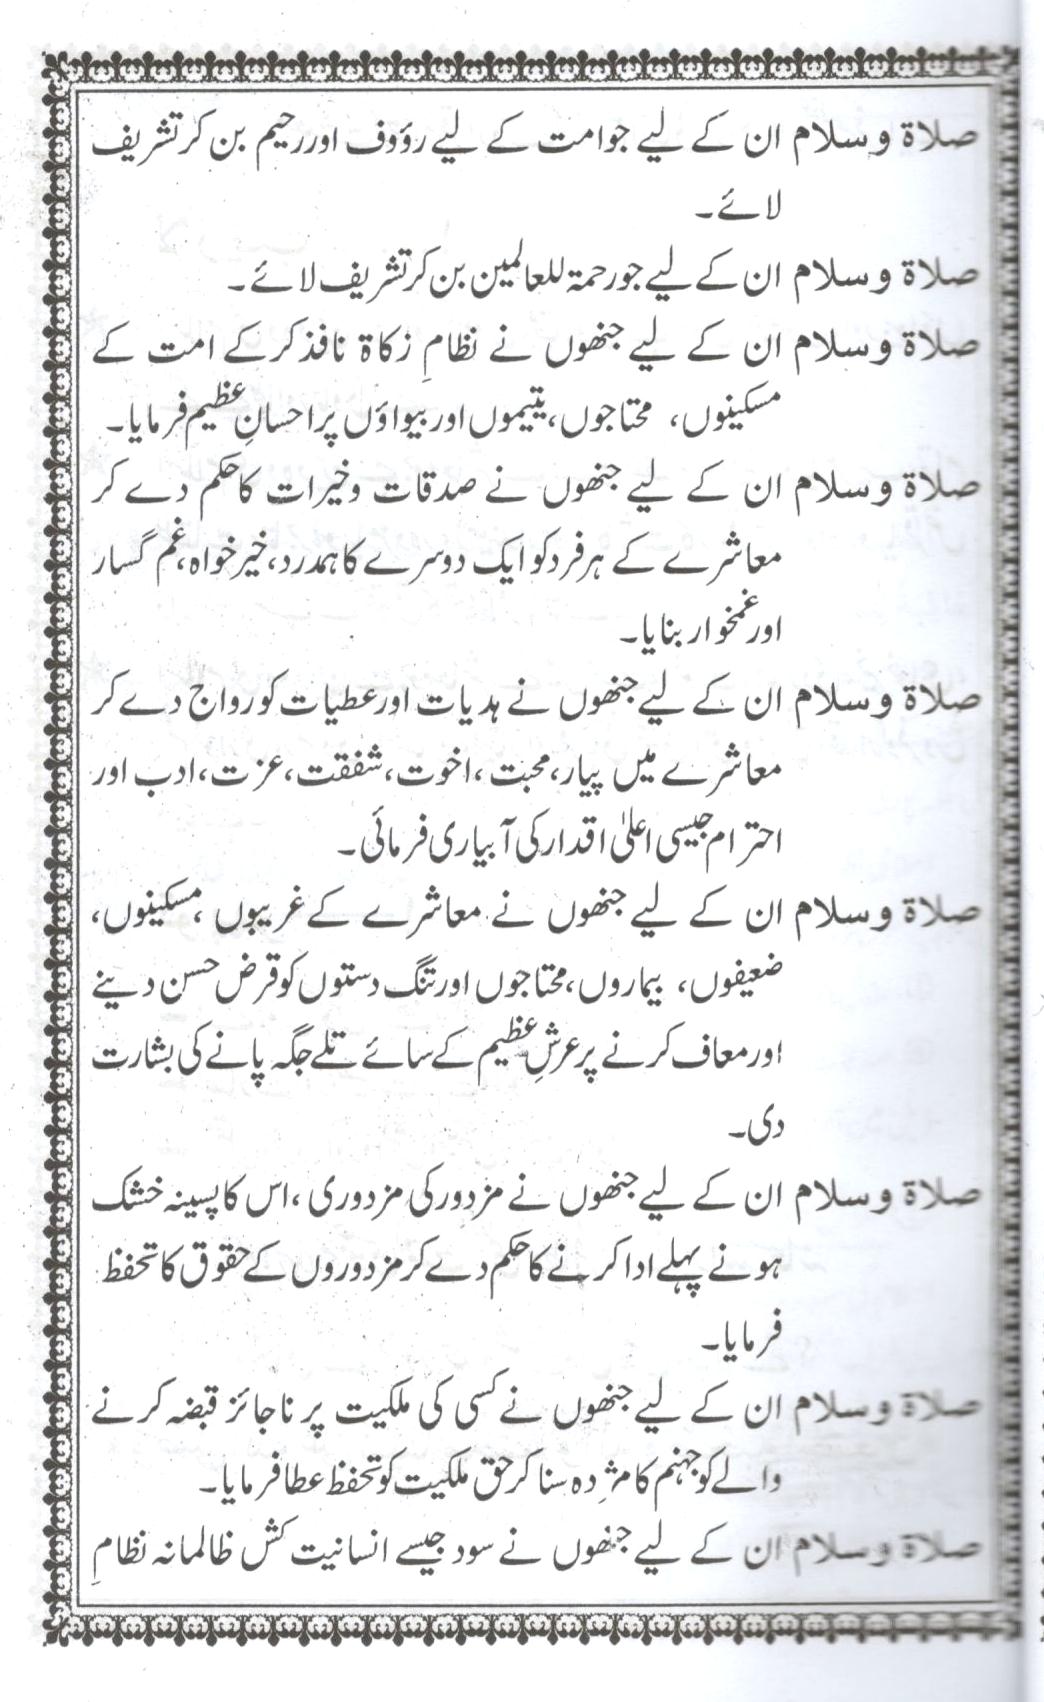 صلاۃ و سلام ان کے لیے جو امت کے لیے رؤوف اور رحیم بن کر تشریف
لائے۔
صلاۃ و سلام ان کے لیے جو رحمۃ للعالمین بن کر تشریف لائے۔
صلاۃ و سلام ان کے لیے جنھوں نے نظامِ زکاۃ نافذ کر کے امت کے
مسکینوں، محتاجوں، یتیموں اور بیواؤں پر احسانِ عظیم فرمایا۔
صلاۃ و سلام ان کے لیے جنھوں نے صدقات و خیرات کا حکم دے کر
معاشرے کے ہر فرد کو ایک دوسرے کا ہمدرد، خیر خواہ، غم گسار
اور غمخوار بنایا۔
صلاۃ و سلام ان کے لیے جنھوں نے ہدیات اور عطیات کو رواج دے کر
معاشرے میں پیار، محبت، اخوت، شفقت، عزت، ادب اور
احترام جیسی اعلیٰ اقدار کی آبیاری فرمائی۔
صلاۃ و سلام ان کے لیے جنھوں نے معاشرے کے غریبوں، مسکینوں،
ضعیفوں، بیماروں، محتاجوں اور تنگ دستوں کو قرض حسن دینے
اور معاف کرنے پر عرشِ عظیم کے سائے تلے جگہ پانے کی بشارت
دی۔
صلاۃ و سلام ان کے لیے جنھوں نے مزدور کی مزدوری، اس کا پسینہ خشک
ہونے پہلے ادا کرنے کا حکم دے کر مزدوروں کے حقوق کا تحفظ
فرمایا۔
صلاۃ و سلام ان کے لیے جنھوں نے کسی کی ملکیت پر ناجائز قبضہ کرنے
والے کو جہنم کا مژدہ سنا کر حق ملکیت کو تحفظ عطا فرمایا۔
صلاۃ و سلام ان کے لیے جنھوں نے سود جیسے انسانیت کش ظالمانہ نظامِ